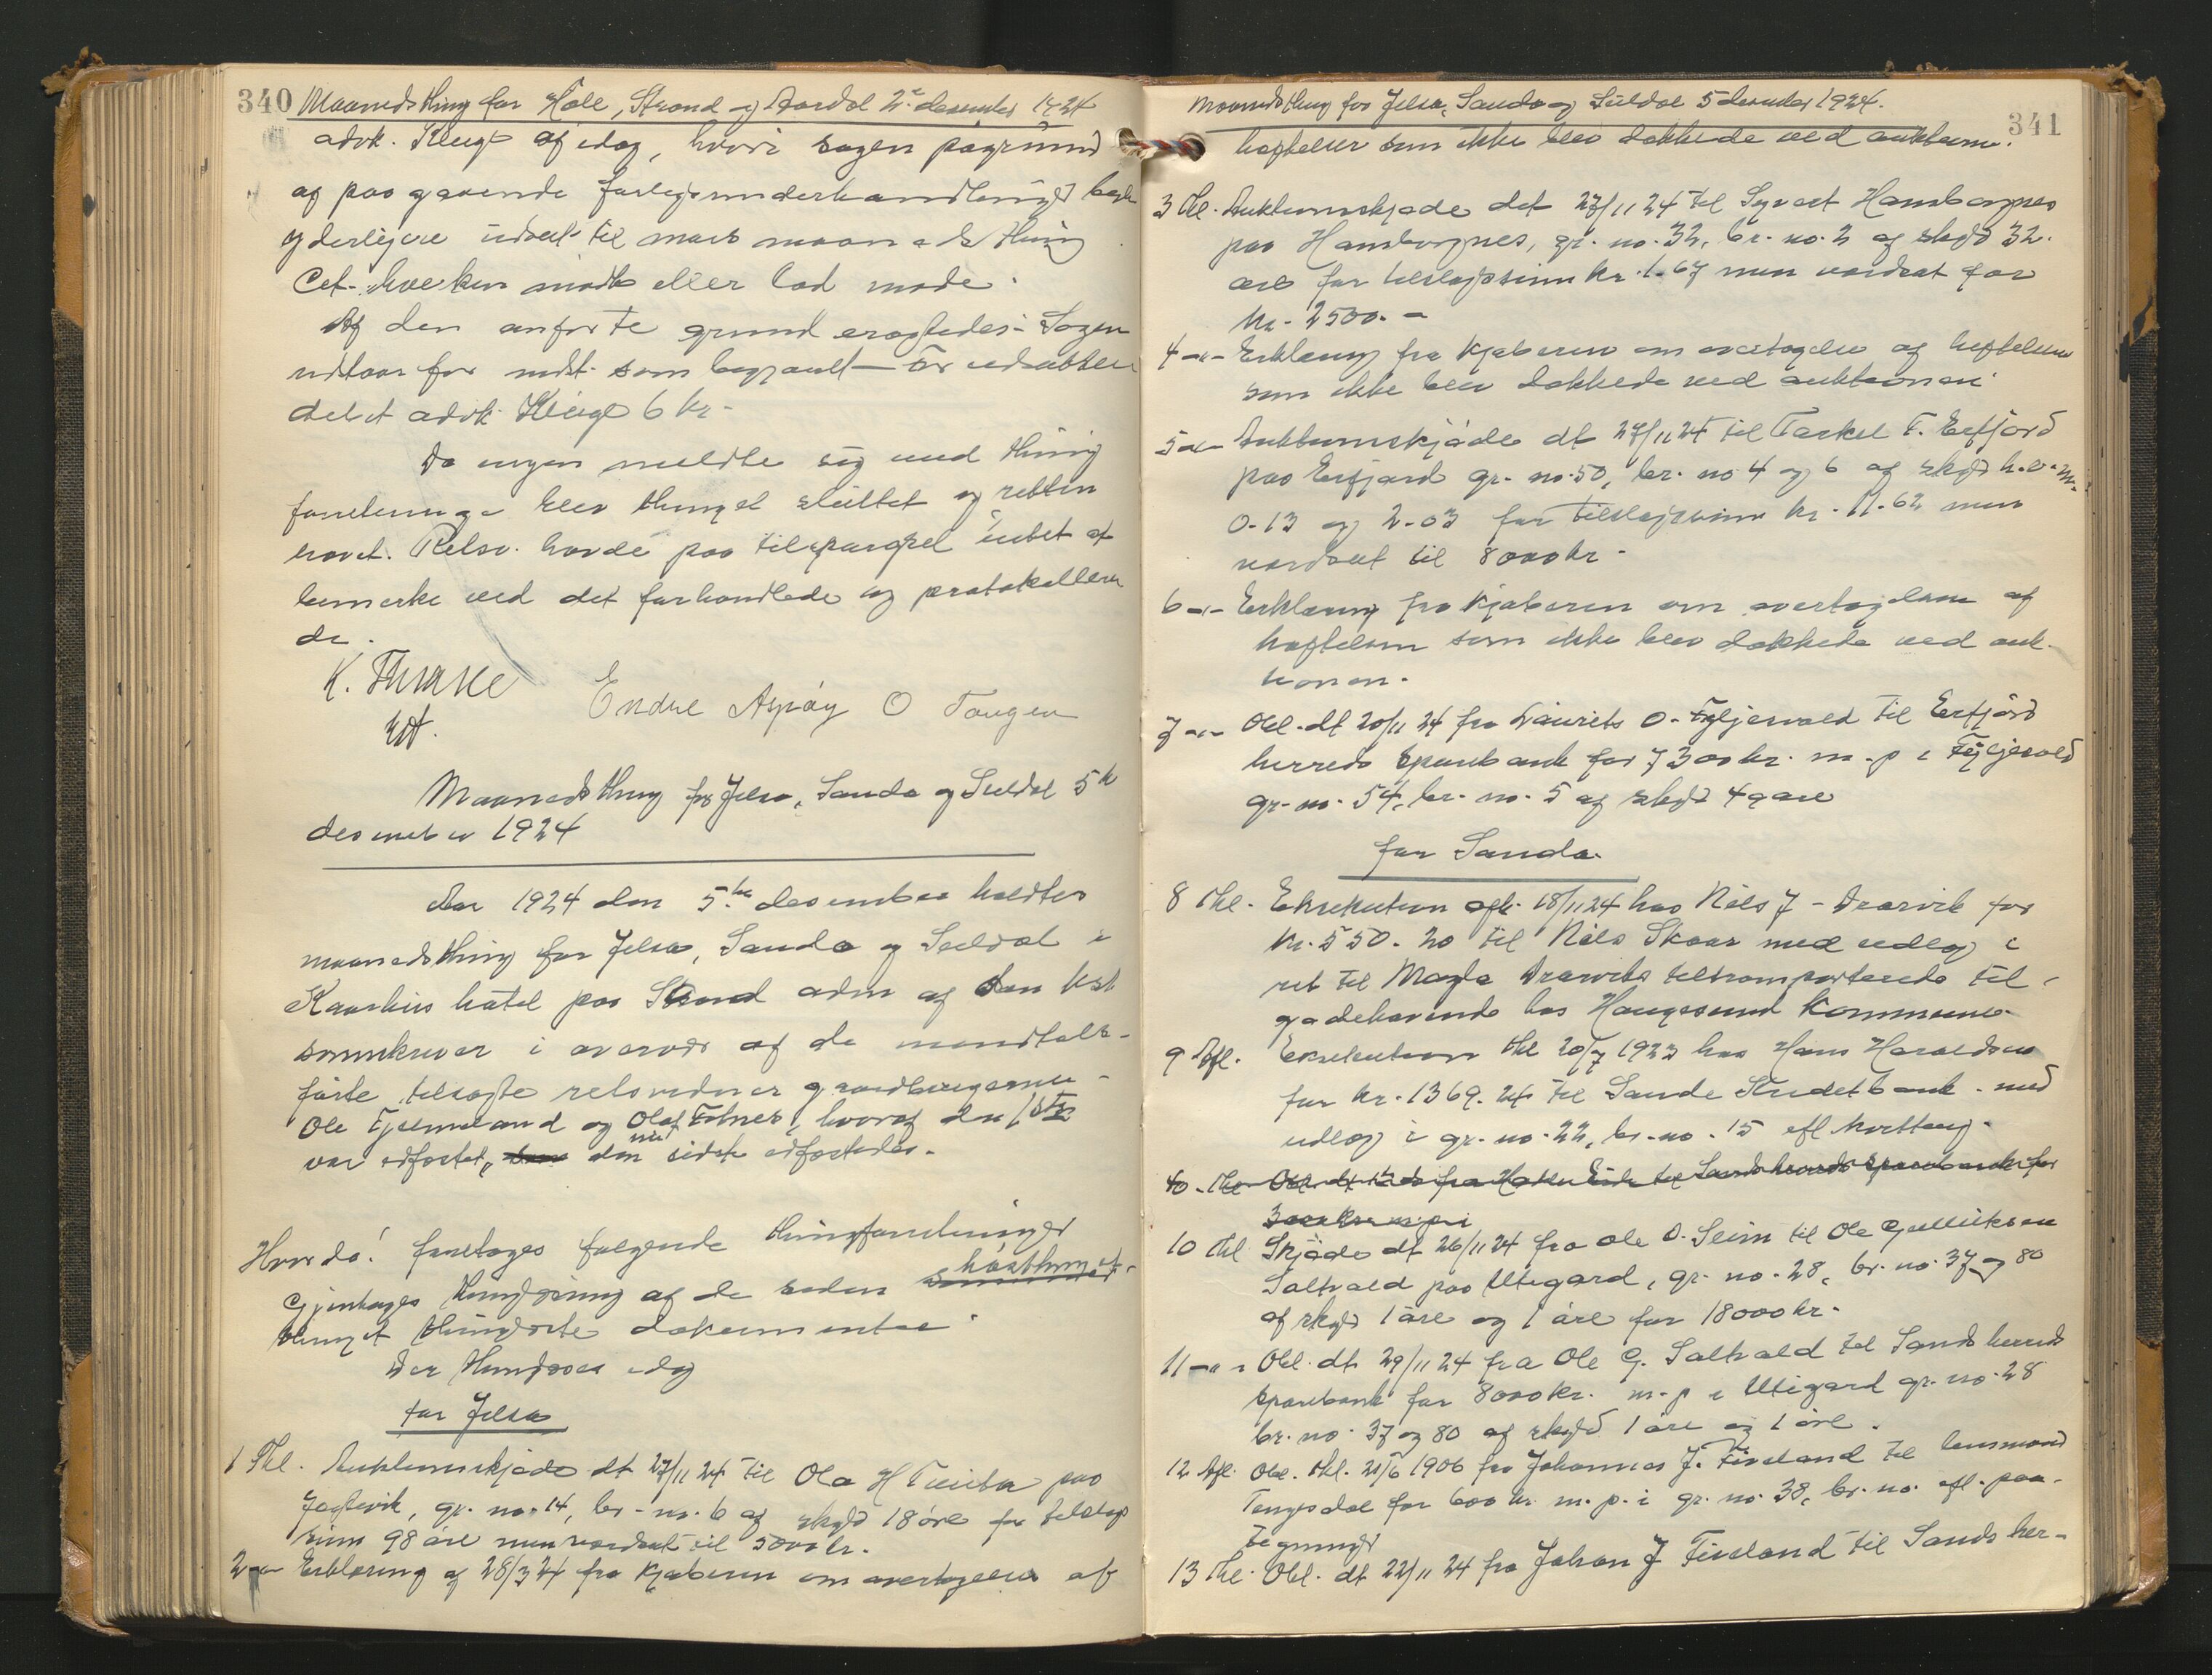 340 Maanedsthing for Höle, Strand og Aardal 2' desember 1924
advk. Kluge af idag, hvori sagen pagrund
af paagaaende forligsunderhandlinger beg
yderligere udsat til mars maanedsthing
Cet. hverken mödte eller lod möde.
Af den anförte grund eragtedes: Sagen
udstaar for mdst. som begjært — For udsættel
delet advk. Kluge 6 kr.
Da ingen meldte sig med thing
forretninger blev thinget sluttet og retten
hævet. Retsv. havde paa tilspørgsel intet at
bemerke ved det forhandlede og protokollere
de.
K. Thrane
Endre Aspöy O Tangen
Maanedsthing for Jelsa, Sauda og Suldal 5te
desember 1924
Aar 1924 den 5.te desember holdtes
maanedsthing for Jelsa, Sauda og Suldal i
Kaarhus hotel paa Sand adm af den kst
sorenskriver i overvær af de mandtals-
förte tilsagte retsvidner gaardbrugerne
Ole Fjelmeland og Olaf Foknes, hvoraf den 1ste
var edfæstet, den sidste edfæstedes.
nu
Hvorda: foretoges følgende thingforretninger
höstthinget
Gjentages thinglæsning af de siden
thinget thinglæste dokumenter
Der thinglæses idag
for Jelsa
1 Thl. Auktionsskjöde dt 27/11 24 til Ola H Tveita paa
Jøsevik, gr. no. 14, br. no. 6 af skyld 18 öre for tilslags
sum 98 öre men værdsat til 5000 kr.
2 -"- Erklæring af 28/3 24 fra kjøberen om overtagelse af
Maanedsthing for Jelsa, Sauda og Suldal 5 desember 1924.
341
hæftelser som ikke blev dækkede ved auktionen.
3 Thl. Auktionsskjøde dt 27/11 24 til Syvert Hamborgnes
paa Hamborgnes, gr. no. 32, br. no. 2 af skyld 32
øre for tilslagssum kr. 1.67 men værdsat for
kr. 2500.-
4 -"- Erklæring fra kjøberen om overtagelse af heftelser
som ikke blev dækkede ved auktionen
5 -"- Auktionsskjöde dt 27/11 24 til Torkel T. Erfjord
paa Erfjord gr. no. 50, br. no 4 og 6 af skyld h.v. m.
0.13 og 2.03 for tilslagssum kr. 11.62 men
værdsat til 8000 kr.
6 -"- Erklæring fra kjøberen om overtagelsen af
hæftelsen som ikke blev dækkede ved auk
tionen.
7 -"- Obl. dt 20/11 24 fra Laurits O. Fylgjesvold til Erfjord
herreds Sparebank for 7300 kr. m. p i Fylgjesvold
gr. no. 54, br. no. 5 af skyld 49 øre
for Sauda.
8 Thl. Eksekution afh. 18/11 24 hos Nils J. Drarvik for
kr. 550.20 til Nils Skaar med udlæg i
ret til Magla Drarviks tiltransporterede til-
godehavende hos Haugesund Kommune.
9 Afl. Eksekution thl 20/7 1923 hos Hans Haraldsen
for kr. 1369.24 til Sauda Kreditbank. med
udlæg i gr. no. 22, br. no. 15 efl kvittering.
10 Thl Obl. dt fra Eide til Sands herreds sparebank for
3000 kr. m. p. i
10 Thl Skjøde dt 26/11 24 fra Ole O. Seim til Ole Gjulliksen
Saltvold paa Utigard, gr. no. 28, br. no. 37 og 80
af skyld 1 øre og 1 øre for 18000 kr.
11 -"- Obl. dt 29/11 24 fra Ole G. Saltvold til Sands herreds
sparebank for 8000 kr. m. p i Utigard gr. no. 28
br. no. 37 og 80 af skyld 1 øre og 1 øre.
12 Afl. Obl. thl. 21/6 1906 fra Johannes J. Fiveland til lensmand
Tengesdal for 600 kr. m. p. i gr. no. 38, br. no. efl. paa-
tegning
13 Thl. Obl. dt 22/11 24 fra Johan J Fiveland til Sands her-